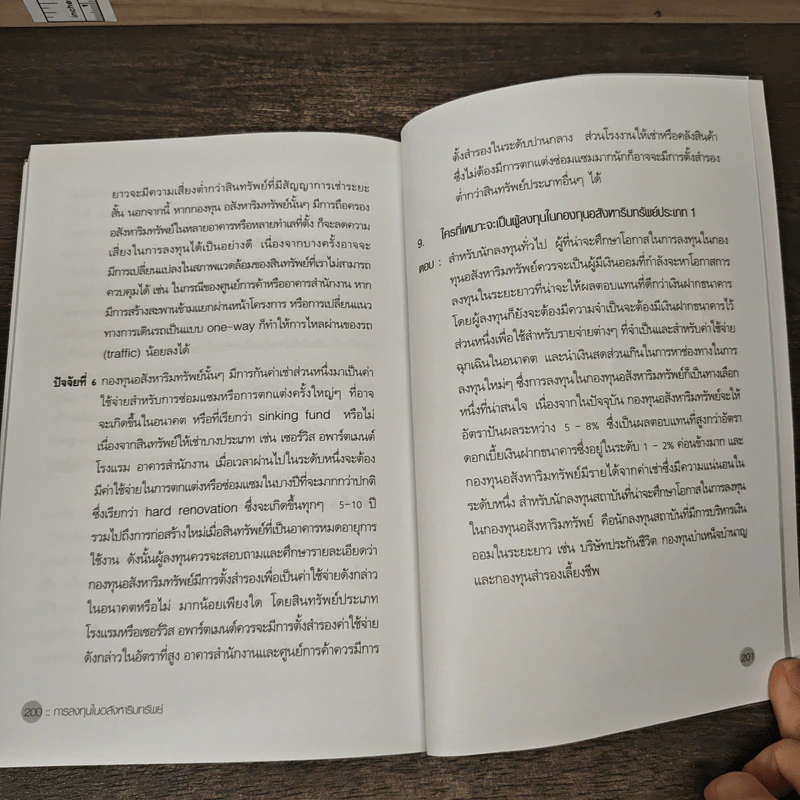 inches
1
ยาวจะมีความเสี่ยงต่ำกว่าสินทรัพย์ที่มีสัญญาการเช่าระยะ
สั้น นอกจากนี้ หากกองทุน อสังหาริมทรัพย์นั้นๆ มีการถือครอง
อสังหาริมทรัพย์ในหลายอาคารหรือหลายทำเลที่ตั้ง ก็จะลดความ
เสี่ยงในการลงทุนได้เป็นอย่างดี เนื่องจากบางครั้งอาจจะ
มีการเปลี่ยนแปลงในสภาพแวดล้อมของสินทรัพย์ที่เราไม่สามารถ
ควบคุมได้ เช่น ในกรณีของศูนย์การค้าหรืออาคารสำนักงาน หาก
มีการสร้างสะพานข้ามแยกผ่านหน้าโครงการ หรือการเปลี่ยนแนว
ทางการเดินรถเป็นแบบ one-way ก็ทำให้การไหลผ่านของรถ
(traffic) น้อยลงได้
ปัจจัยที่ 6 กองทุนอสังหาริมทรัพย์นั้นๆ มีการกันค่าเช่าส่วนหนึ่งมาเป็นค่า
ใช้จ่ายสำหรับการซ่อมแซมหรือการตกแต่งครั้งใหญ่ๆ ที่อาจ
จะเกิดขึ้นในอนาคต หรือที่เรียกว่า sinking fund หรือไม่
เนื่องจากสินทรัพย์ให้เช่าบางประเภท เช่น เซอร์วิส อพาร์ตเมนต์
โรงแรม อาคารสำนักงาน เมื่อเวลาผ่านไปในระดับหนึ่งจะต้อง
มีค่าใช้จ่ายในการตกแต่งหรือซ่อมแซมในบางปีที่จะมากกว่าปกติ
ซึ่งเรียกว่า hard renovation ซึ่งจะเกิดขึ้นทุกๆ 5-10 ปี
รวมไปถึงการก่อสร้างใหม่เมื่อสินทรัพย์ที่เป็นอาคารหมดอายุการ
ใช้งาน ดังนั้นผู้ลงทุนควรจะสอบถามและศึกษารายละเอียดว่า
กองทุนอสังหาริมทรัพย์มีการตั้งสำรองเพื่อเป็นค่าใช้จ่ายดังกล่าว
ในอนาคตหรือไม่ มากน้อยเพียงใด โดยสินทรัพย์ประเภท
โรงแรมหรือเซอร์วิส อพาร์ตเมนต์ควรจะมีการตั้งสำรองค่าใช้จ่าย
ดังกล่าวในอัตราที่สูง อาคารสำนักงานและศูนย์การค้าควรมีการ
200 :: การลงทุนในอสังหาริมทรัพย์
ตั้งสำรองในระดับปานกลาง ส่วนโรงงานให้เช่าหรือคลังสินค้า
ซึ่งไม่ต้องมีการตกแต่งซ่อมแซมมากนักก็อาจจะมีการตั้งสำรอง
ต่ำกว่าสินทรัพย์ประเภทอื่นๆ ได้
9. ใครที่เหมาะจะเป็นผู้ลงทุนในกองทุนอสังหาริมทรัพย์ประเภท 1
ตอบ : สำหรับนักลงทุนทั่วไป ผู้ที่น่าจะศึกษาโอกาสในการลงทุนในกอง
ทุนอสังหาริมทรัพย์ควรจะเป็นผู้มีเงินออมที่กำลังจะหาโอกาสการ
ลงทุนในระยะยาวที่น่าจะให้ผลตอบแทนที่ดีกว่าเงินฝากธนาคาร
โดยผู้ลงทุนก็ยังจะต้องมีความจำเป็นจะต้องมีเงินฝากธนาคารไว้
ส่วนหนึ่งเพื่อใช้สำหรับรายจ่ายต่างๆ ที่จำเป็นและสำหรับค่าใช้จ่าย
ฉุกเฉินในอนาคต และนำเงินสดส่วนเกินในการหาช่องทางในการ
ลงทุนใหม่ๆ ซึ่งการลงทุนในกองทุนอสังหาริมทรัพย์ก็เป็นทางเลือก
หนึ่งที่น่าสนใจ เนื่องจากในปัจจุบัน กองทุนอสังหาริมทรัพย์จะให้
อัตราปันผลระหว่าง 5 - 8% ซึ่งเป็นผลตอบแทนที่สูงกว่าอัตรา
ดอกเบี้ยเงินฝากธนาคารซึ่งอยู่ในระดับ 1 - 2% ค่อนข้างมาก และ
กองทุนอสังหาริมทรัพย์มีรายได้จากค่าเช่าซึ่งมีความแน่นอนใน
ระดับหนึ่ง สำหรับนักลงทุนสถาบันที่น่าจะศึกษาโอกาสในการลงทุน
ในกองทุนอสังหาริมทรัพย์ คือนักลงทุนสถาบันที่มีการบริหารเงิน
ออมในระยะยาว เช่น บริษัทประกันชีวิต กองทุนบำเหน็จบำนาญ
และกองทุนสำรองเลี้ยงชีพ
201